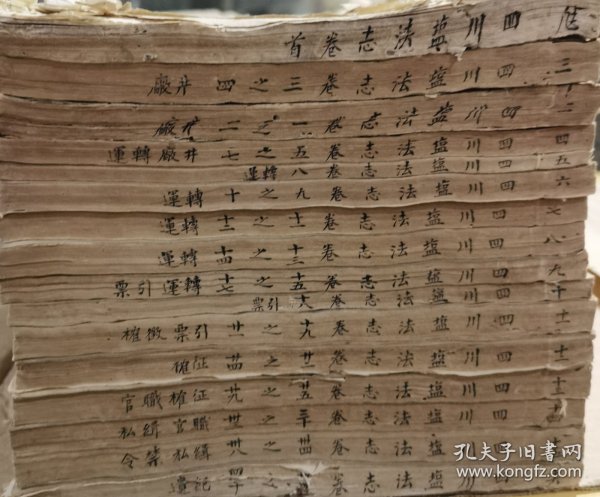 四川盐法志卷首
三 四川盐法志卷三之四井廠
二 四川盐法志卷一之二井廠
四 四川盐法志卷五之七井廠轉運
五 四川盐法志卷八轉運
六 四川盐法志卷九之十轉運
七 四川盐法志卷十一之十二轉運
八 四川盐法志卷十三之十四轉運
九 四川盐法志卷十五之十七轉運引票
十 四川盐法志卷十八引票
十一 四川盐法志卷十九之廿一引票徵榷
十二 四川盐法志卷廿二之廿四征榷
十三 四川盐法志卷廿五之廿九征榷職官
四川盐法志卷三十之卅三職官緝私
四川盐法志卷卅四之卅八緝私禁令
四川盐法志卷之四十紀遺
孔夫子旧书网
www.kongfz.com